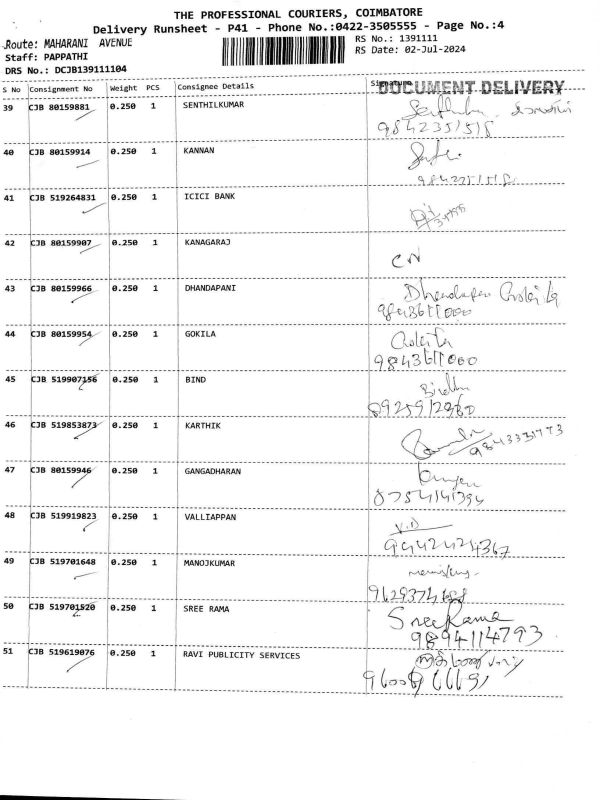 THE PROFESSIONAL COURIERS, COIMBATORE
Delivery Runsheet - P41 - Phone No.:0422-3505555 - Page No.:4
Route: MAHARANI AVENUE
RS No.: 1391111
Staff: PAPPATHI
RS Date: 02-Jul-2024
DRS No.: DCJB139111104
S No Consignment No Weight PCS Consignee Details Signature
DOCUMENT DELIVERY
39 CJB 80159881 0.250 1 SENTHILKUMAR
9842351515
40 CJB 80159914 0.250 1 KANNAN
41 CJB 519264831 0.250 1 ICICI BANK
42 CJB 80159907 0.250 1 KANAGARAJ
43 CJB 80159966 0.250 1 DHANDAPANI Dhandapani
9843611000
44 CJB 80159954 0.250 1 GOKILA
9843611000
45 CJB 519907156 0.250 1 BIND
46 CJB 519853873 0.250 1 KARTHIK
47 CJB 80159946 0.250 1 GANGADHARAN
48 CJB 519919823 0.250 1 VALLIAPPAN
9942424367
49 CJB 519701648 0.250 1 MANOJKUMAR
50 CJB 519701520 0.250 1 SREE RAMA Sree Rama
9894114793
51 CJB 519619076 0.250 1 RAVI PUBLICITY SERVICES